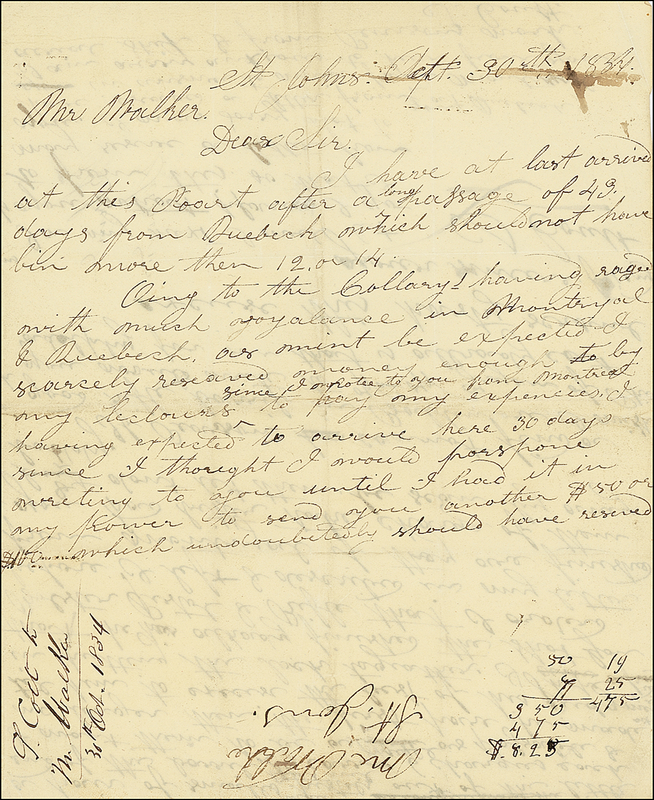 St Johns. Sept. 30th 1834.
Mr Walker.
Dear Sir.
I have at last arrived
at this Poart after a long passage of 43.
days from Quebech which should not have
bin more then 12. or 14.
Oing to the Collary having raged
with much vyalance in Montryal
& Quebech. as must be expected I
scarsely reseaved money enough to by
since I wrotee to you from Montreal
my lectours to pay my expencies. I
having expected to arrive here 30 days
since I thought I would porspone
wreting to you until I had it in
my power to send you another $50 or
which undoubitedly should have reseved
S. Colt to
Mr. Walker
30th 1834
Mr
St. Jons.
50 19
7 25
350 475
475
$.8.25